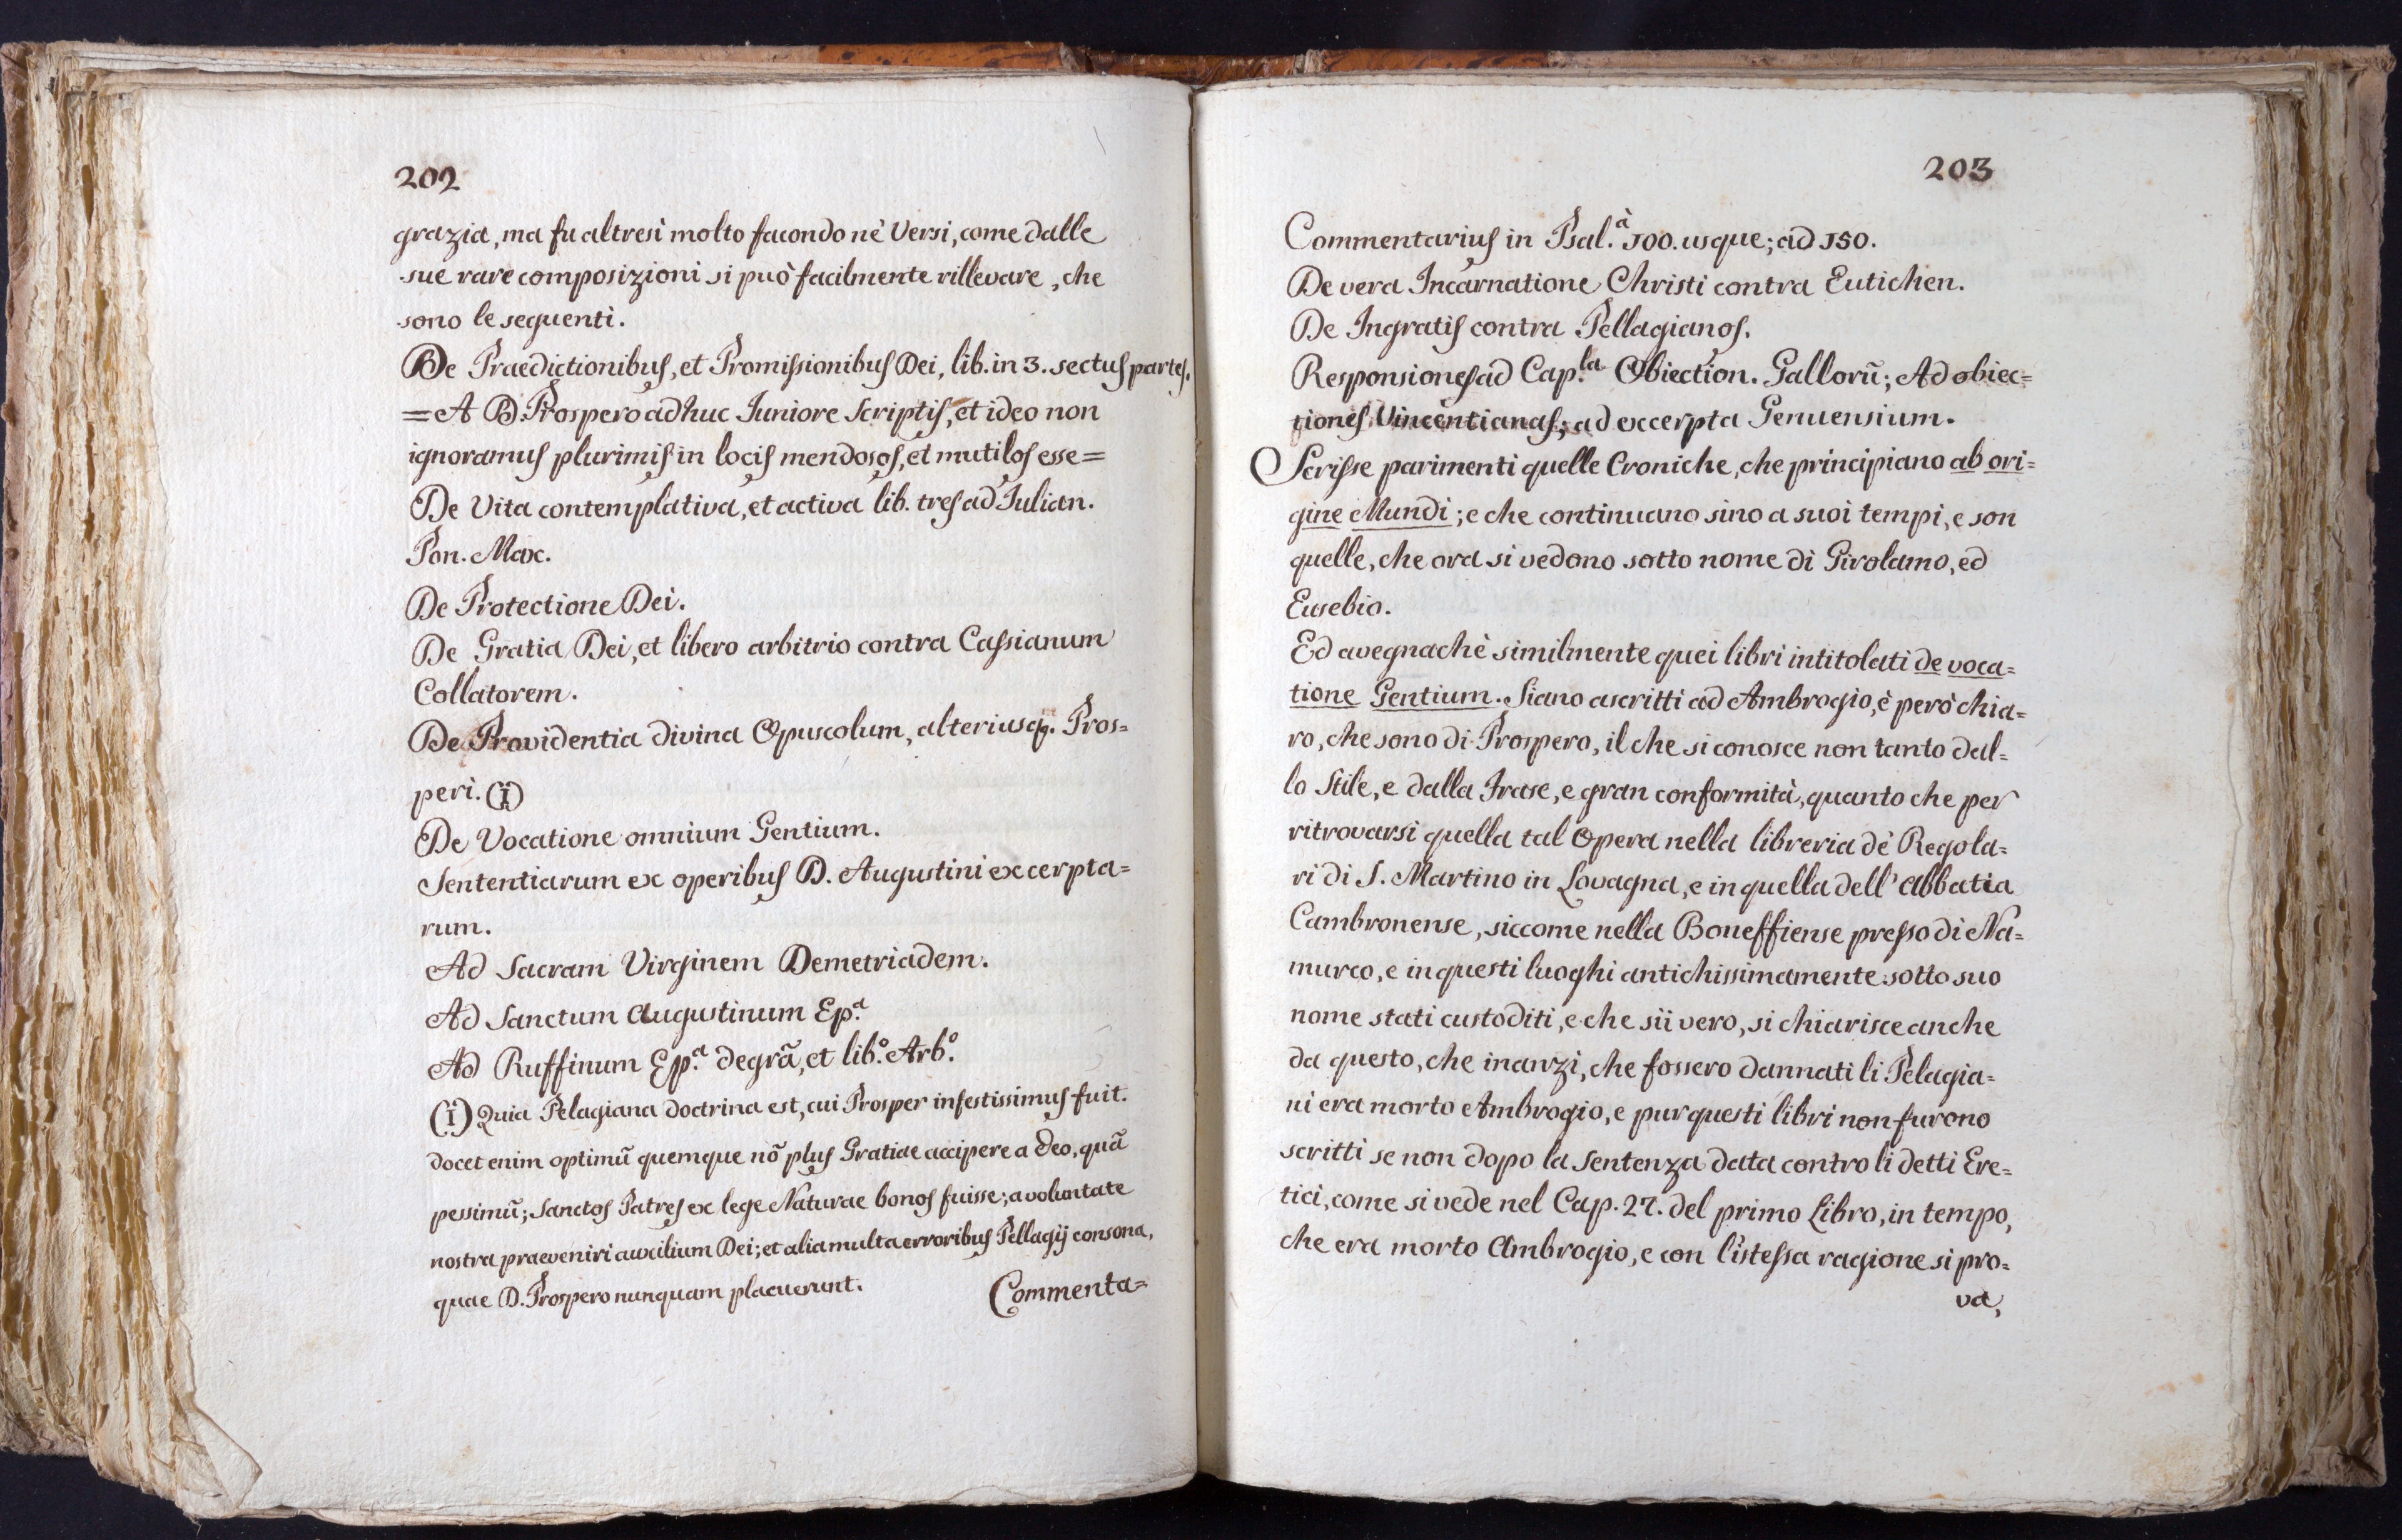 202
grazia, ma fu altresì molto facondo nè Versi, come dalle
sue rare composizioni si può facilmente rillevare, che
sono le seguenti.
De Praedictionibus, et Promissionibus Dei, lib. in 3. sectus partes.
= A D. Prospero adhuc Iuniore Scriptis, et ideo non
ignoramus plurimis in locis mendosos, et mutilos esse =
De Vita contemplativa, et activa lib. tres ad Iulian.
Pon. Max.
De Protectione Dei.
De Gratia Dei, et libero arbitrio contra Cassianum
Collatorem.
De Providentia divina Opuscolum, alteriusq. Pros=
peri. (I)
De Vocatione omnium Gentium.
Sententiarum ex operibus D. Augustini excerpta=
rum.
Ad Sacram Virginem Demetriadem.
Ad Sanctum Augustinum Ep.ᵃ
Ad Ruffinum Ep.ᵃ de grã, et lib.º Arb.º
(I) Quia Pelagiana doctrina est, cui Prosper infestissimus fuit.
docet enim optimũ quemque nõ plus Gratiae accipere a Deo, quã
pessimũ; Sanctos Patres ex lege Naturae bonos fuisse; a voluntate
nostra praeveniri auxilium Dei; et alia multa erroribus Pellagij consona,
quae D. Prospero nunquam placuerunt.
Commenta=
203
Commentarius in Psal. à 100. usque; ad 150.
De vera Incarnatione Christi contra Eutichen.
De Ingratis contra Pellagianos.
Responsiones ad Cap.ˡᵃ Obiection. Gallorũ; Ad obiec=
tiones Vincentianas; ad excerpta Genuensium.
Scrisse parimenti quelle Croniche, che principiano ab ori=
gine Mundi; e che continuano sino a suoi tempi, e son
quelle, che ora si vedono sotto nome di Girolamo, ed
Eusebio.
Ed avegnachè similmente quei libri intitolati de voca=
tione Gentium. Siano ascritti ad Ambrogio, è però chia=
ro, che sono di Prospero, il che si conosce non tanto dal=
lo Stile, e dalla Frase, e gran conformità, quanto che per
ritrovarsi quella tal Opera nella libreria dè Regola=
ri di S. Martino in Lovagna, e in quella dell' Abbatia
Cambronense, siccome nella Boneffiense presso di Na=
murco, e in questi luoghi antichissimamente sotto suo
nome stati custoditi, e che sii vero, si chiarisce anche
da questo, che inanzi, che fossero dannati li Pelagia=
ni era morto Ambrogio, e pur questi libri non furono
scritti se non dopo la Sentenza data contro li detti Ere=
tici, come si vede nel Cap. 27. del primo Libro, in tempo,
che era morto Ambrogio, e con l'istessa ragione si pro=
va,